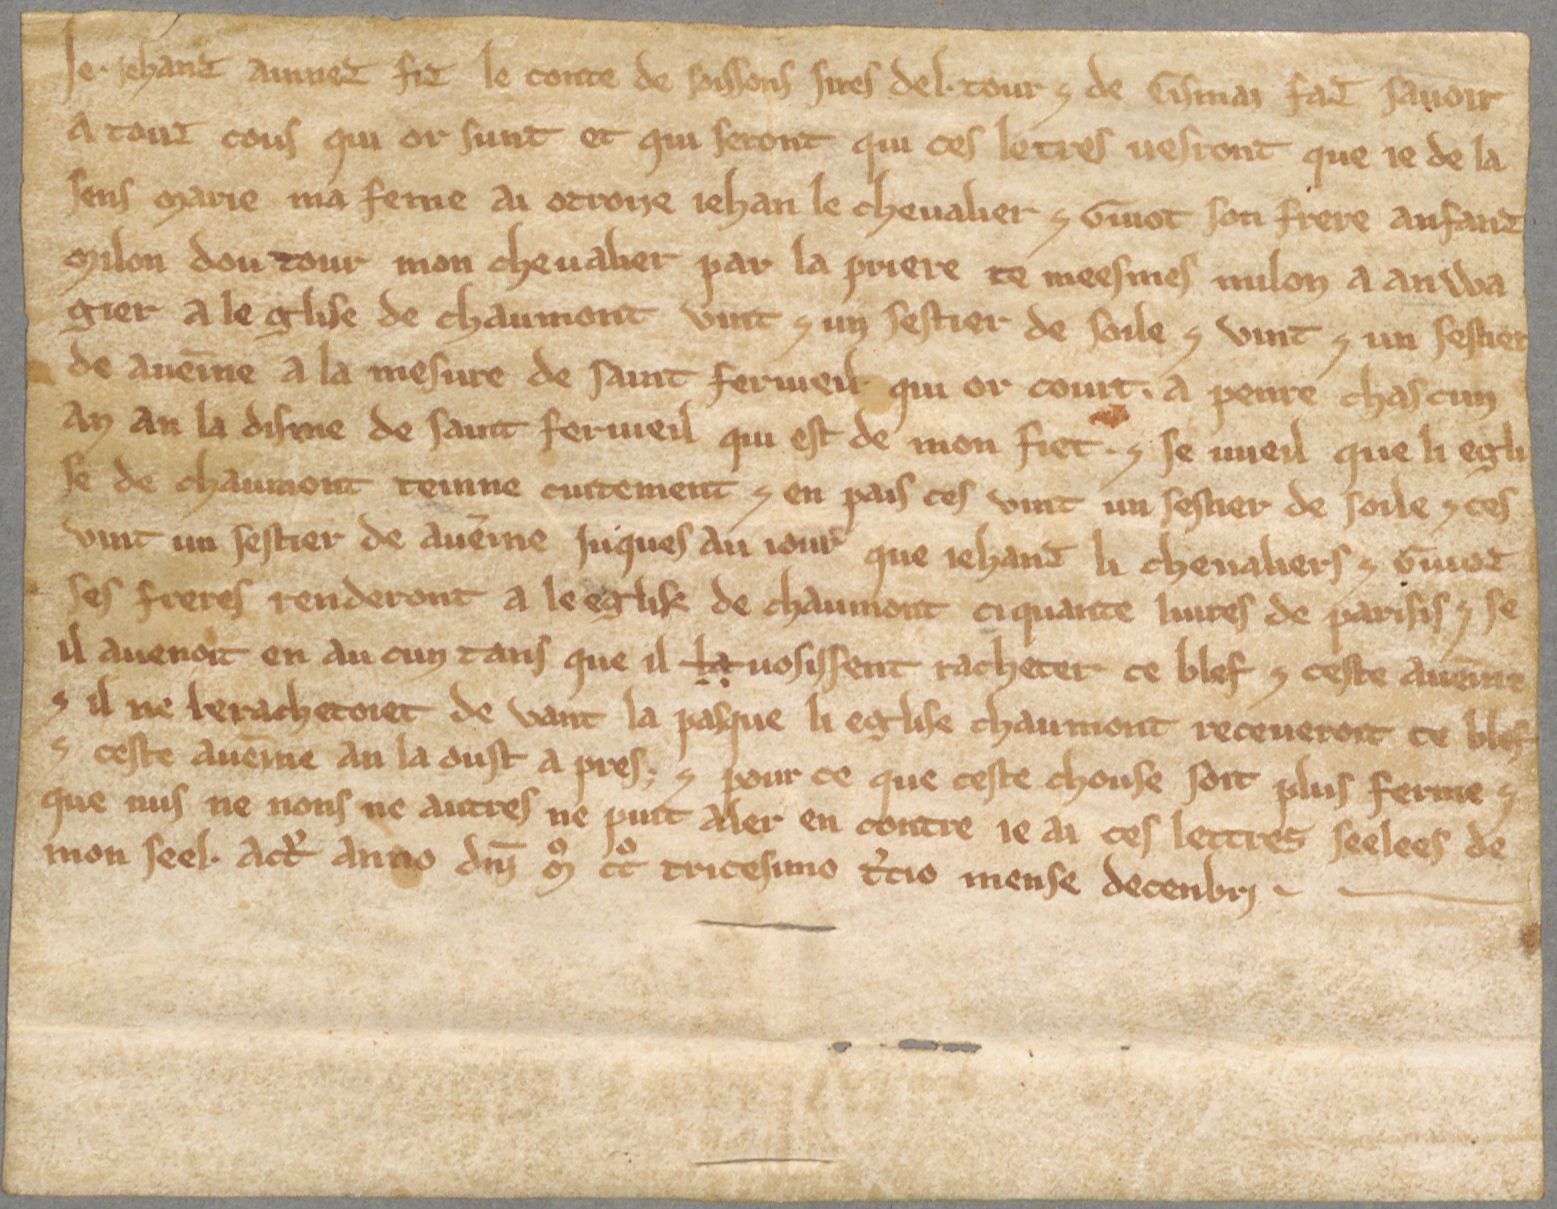 Je. iehanz ainnez fiz le conte de soissons sires del. tour ⁊ de Cismai faz sauoir
a touz cous qui or sunt et qui seront qui ces letres uesront que ie de la
sens marie ma feme ai otroije iehan le cheualier ⁊ Guiot son frere anfanz
milon dou tour mon cheualier par la priere ce meesmes milon a anwa
gier a le glise de chaumont vint ⁊ un sestier de soile ⁊ vint ⁊ un sestier
de auēine a la mesure de saint fermeil qui or court. a penre chascun
an an la disme de saint fermeil qui est de mon fiet. ⁊ se uueil que li egli
se de chaumont teinne cuitement ⁊ en pais ces vint un sestier de soile ⁊ ces
vint un sestier de auēine iuques au iour que iehanz li cheualiers ⁊ Guioz
ses freres renderont a le eglise de chaumont ciquante liures de parisis ⁊ se
il auenoit en au cun tans que il la uosissent racheter ce blef ⁊ ceste auēine
⁊ il ne le rachetoiet de vant la pasque li eglise chaumont receueroit ce blef
⁊ ceste auēine an la oust a pres. ⁊ pour ce que ceste chouse soit plus ferme ⁊
que nus ne nons ne autres ne puit aler en contre ie ai ces lettres seelees de
mon seel. act̄ anno dn̄j mͦ ccͦ tricesimo t'cio mense decenbrj